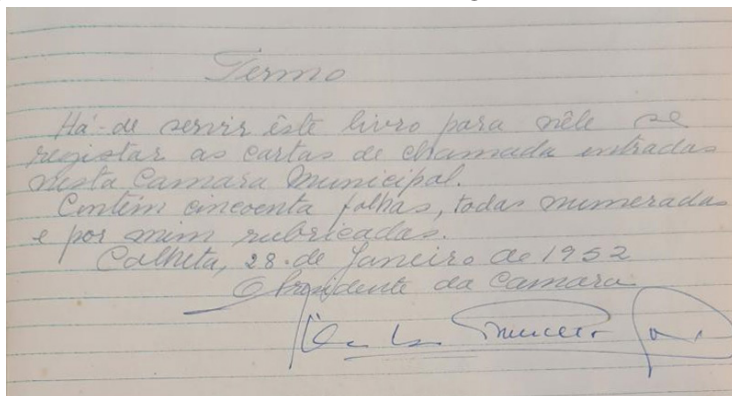 Termo
Há-de servir êste livro para nêle se
registar as cartas de chamada entradas
nesta Camara Municipal.
Contém cincoenta folhas, todas numeradas
e por mim rubricadas.
Calheta, 28 de Janeiro de 1952
O Presidente da Camara